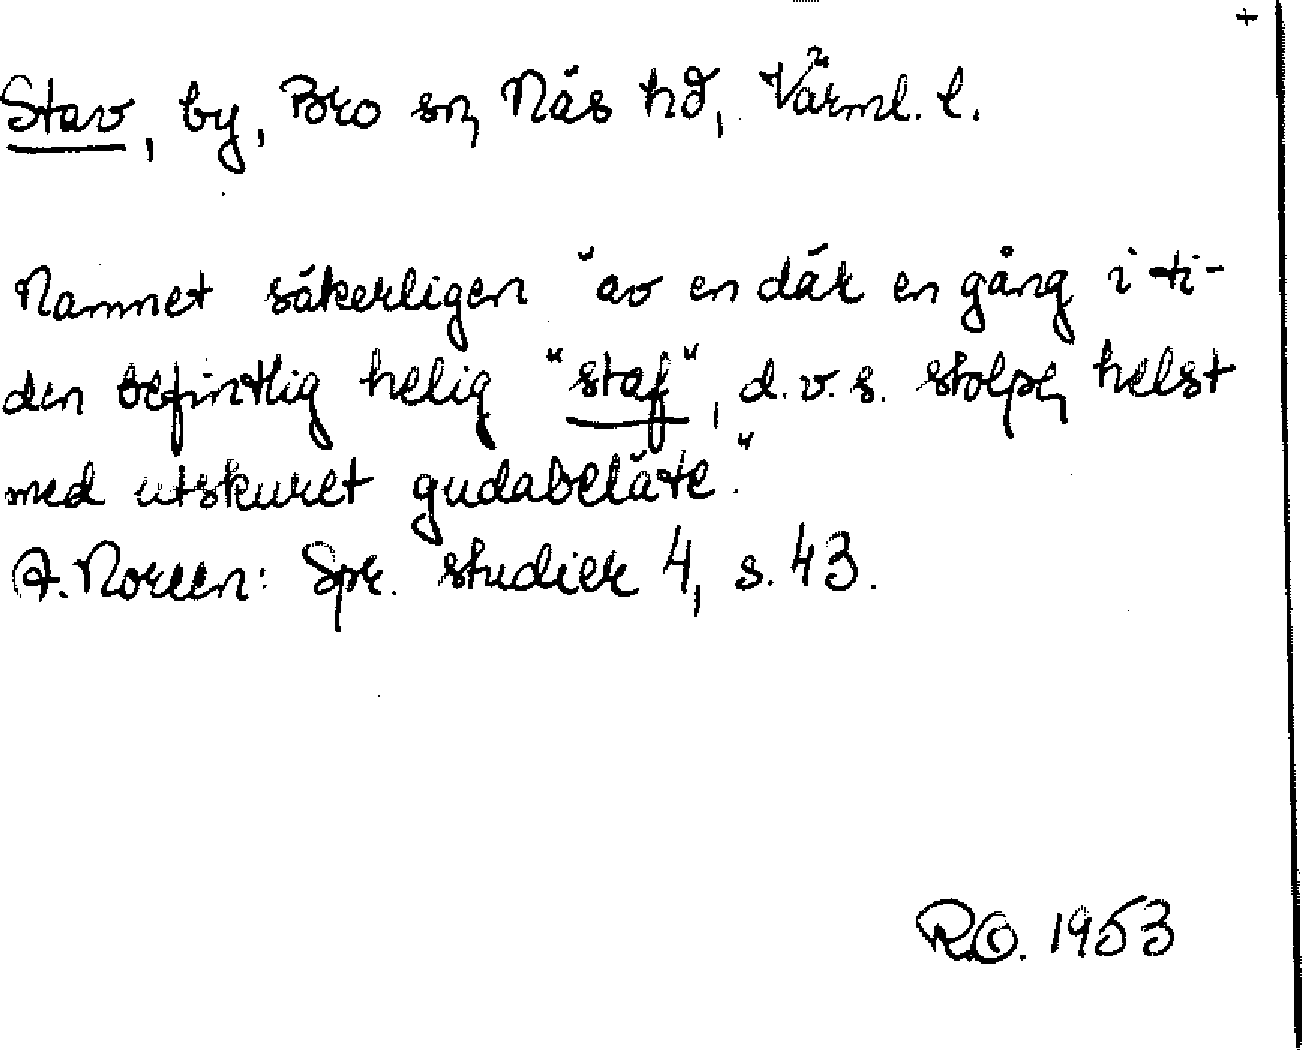 +
Stav, by, Bro sn, Näs hd, Värml. l.
Namnet säkerligen "av en där en gång i ti-
den befintlig helig "staf", d.v.s. stolpe, helst
med utskuret gudabeläte."
A. Noreen: Spr. studier 4, s. 43.
R.O. 1953